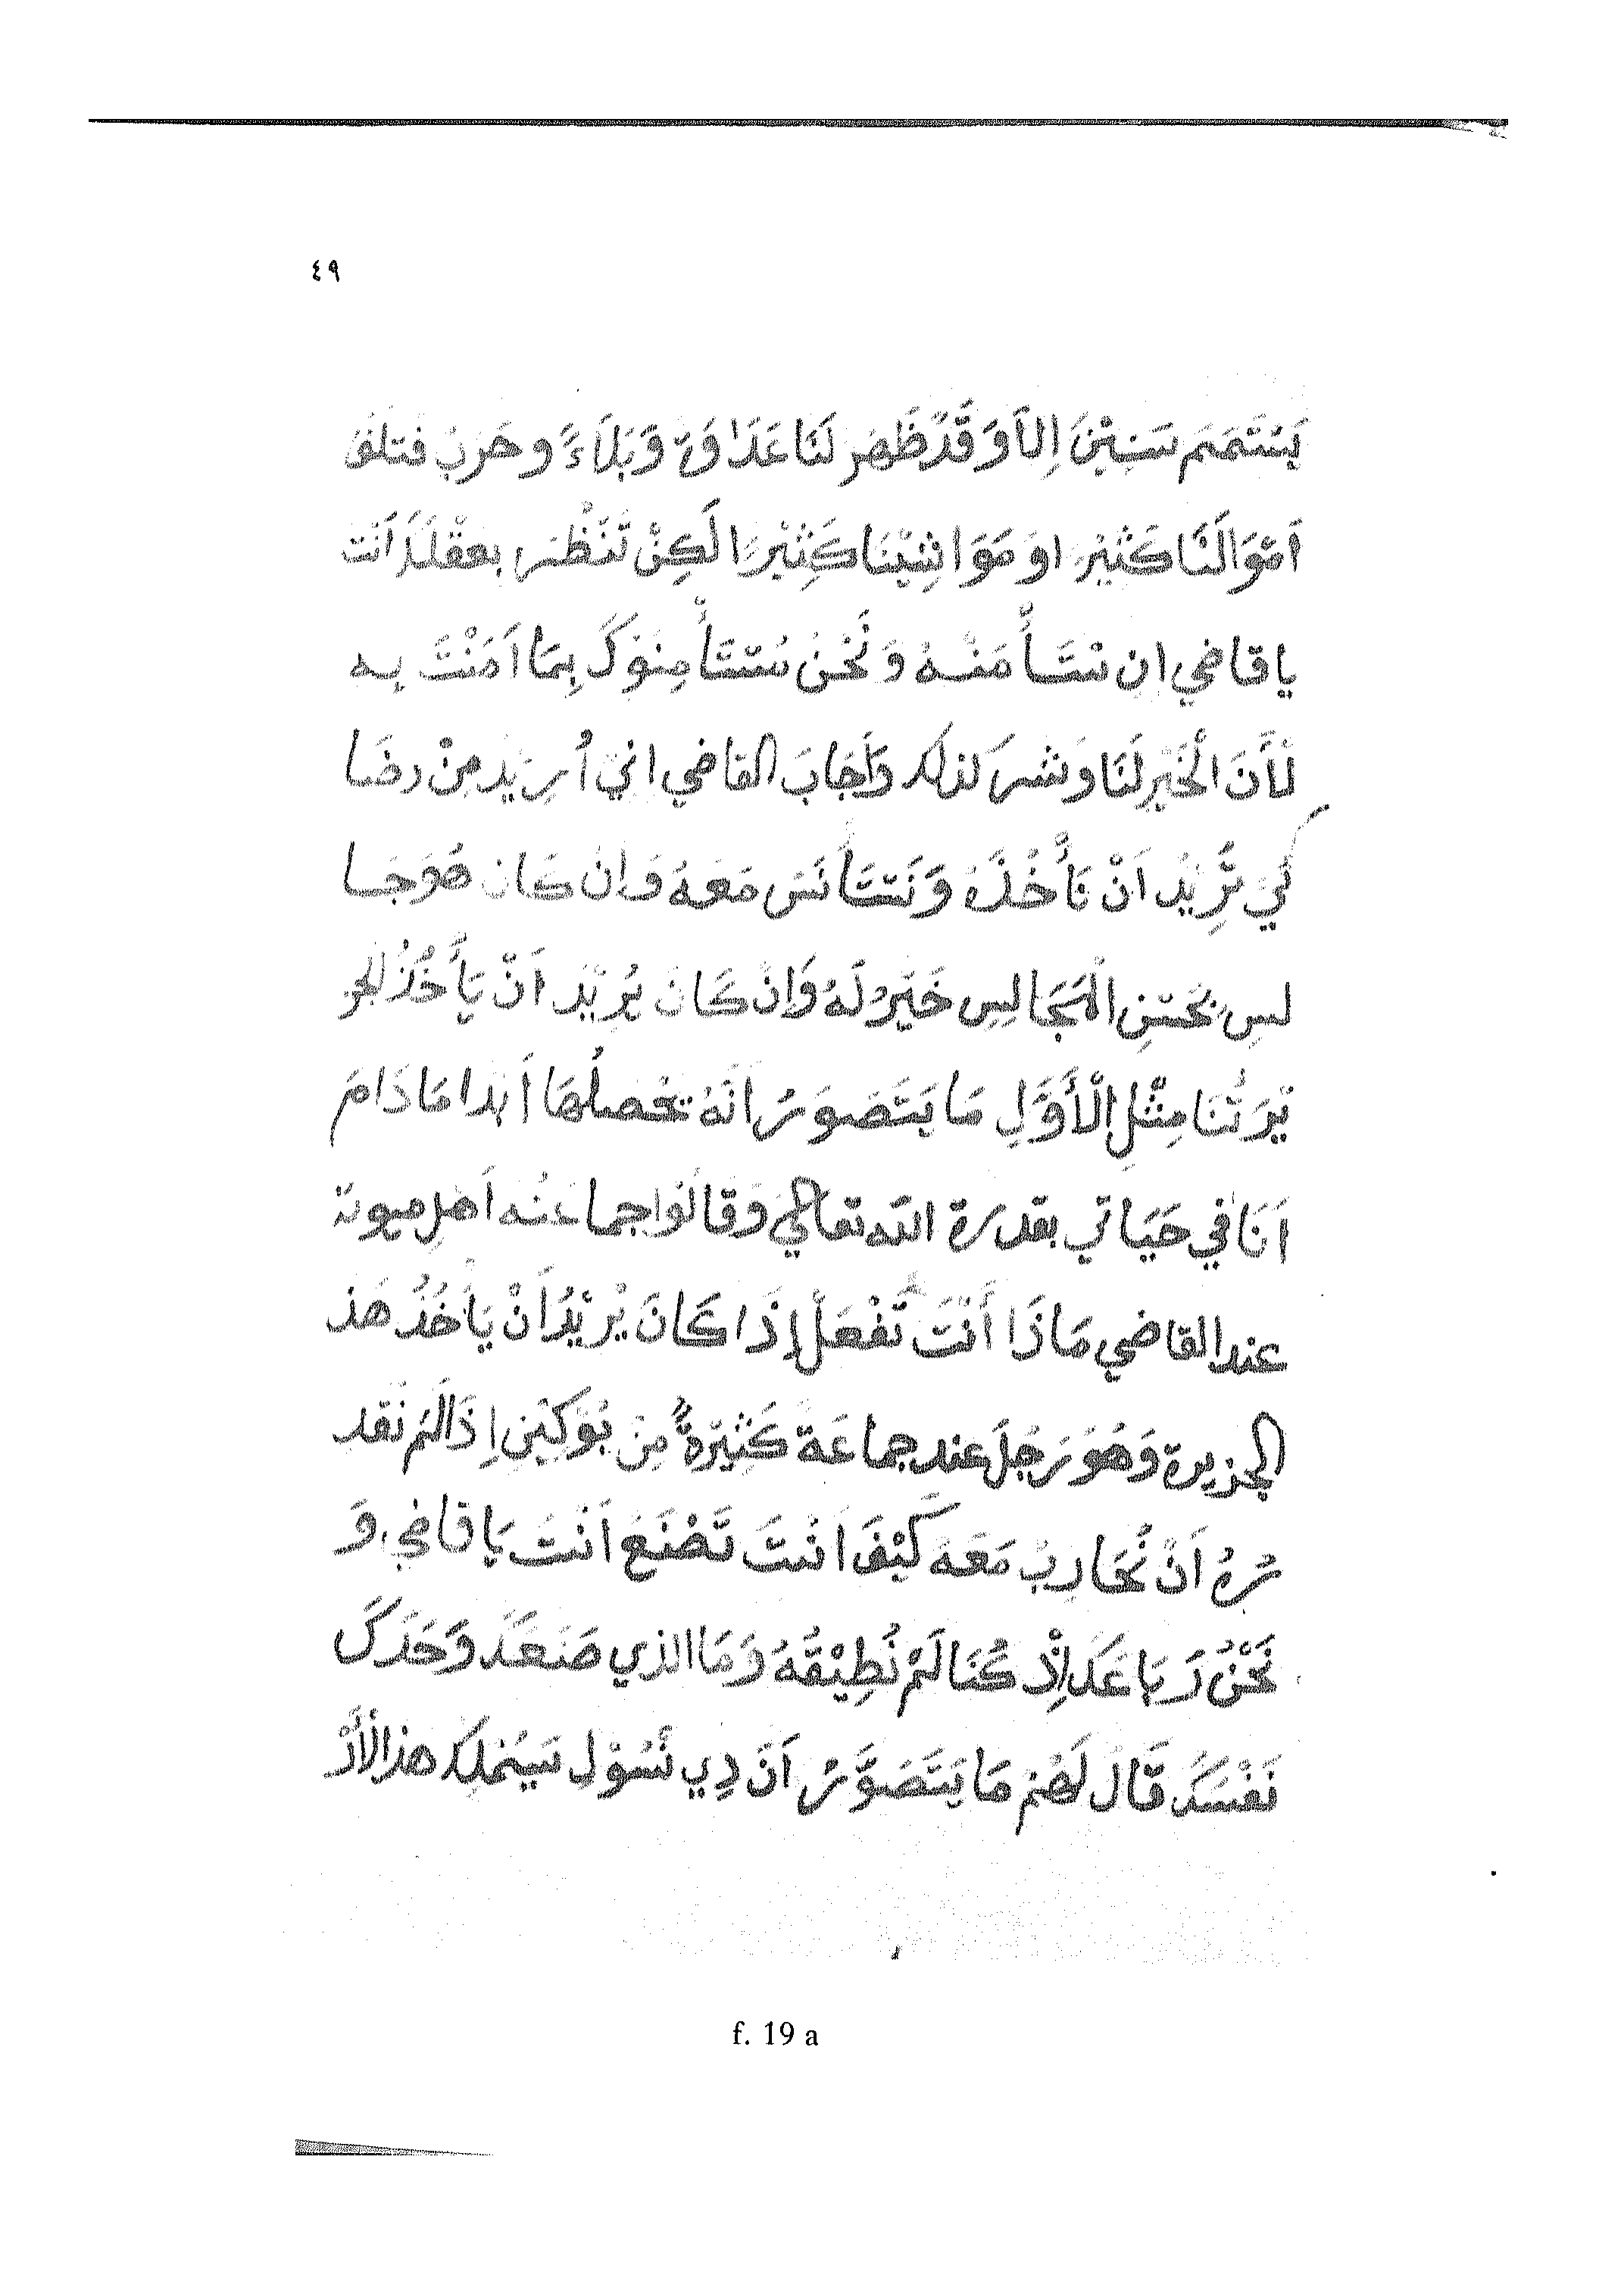 ٤٩
يَسْتَمَمَ سَنِيْنَ اِلاَّ وَقَدْ ظَهَرَ لَنَا عَدَاوَة وَبَلَاءً وَحَرَبْ فتلف
اَمْوَالَنَا كَثِيْر اوَ مَوَاثِيْنَا كَثِيْرًا لَكِنْ تَنْظُر بعقْلَكَ اَنْت
يا قاضي ان نَتَأْمَنْهُ وَنَحْنُ نَسْتَأْمِنوكَ بِمَا اَمَنْتَ بِه
لَأَنَ الْخَيْر لَنَا وَشَر كذلك وَأَجَابَ القاضي انيْ أُرِيْد مِنْ رضَا
كَيْ تُرِيْد اَنْ تَأْخُذَهْ وَنَتَأَنَس مَعَهُ وَاِنْ كَان هُوَ جَا
لس بحَسَنِ الْمَجَالِس خَيْرْ لَهُ وَاِنْ كَانَ يُرِيْد اَنْ يَأْخُذْ لجز
يْرَتْنَا مِثْلِ الْأَوَّلِ مَا يَتَصَوَرُ اَنَهُ تحْصلُهَا أَبَدا مَا دَامَ
اَنَا في حَيَاتي بقدرة الله تعالىْ وَقَالُوا جماعَهْ اَهْلِ ميوتة
عند القاضي مَاذَا أَنْتَ تَفْعَلْ إِذَا كَانَ يُرِيْدُ أَنْ يَأْخُذْ هَذ
الجزيرة وَهُوَ رَجُلَ عِند جماعَة كَثِيْرَةٌ مِنْ بُوْكِيْنِ اِذَا لَمْ نَقد
رُهُ اَنْ نُحَارِبْ مَعَهُ كَيْفَ اَنْتَ تَصْنَعْ اَنْتَ يَا قاضي وَ
نَحْنُ رَبَاعَكَ اِذْ كُنَا لَمْ نُطِيْقُهُ وَمَا الذي صَنَعَكَ وَحَدَكَ
نَفْسَكَ قَالَ لَهُمْ مَا يَتَصَوَّرُ اَنَ دِي نسُوْلِ سَيُمْلِك هذا الْأَرْ
f. 19 a